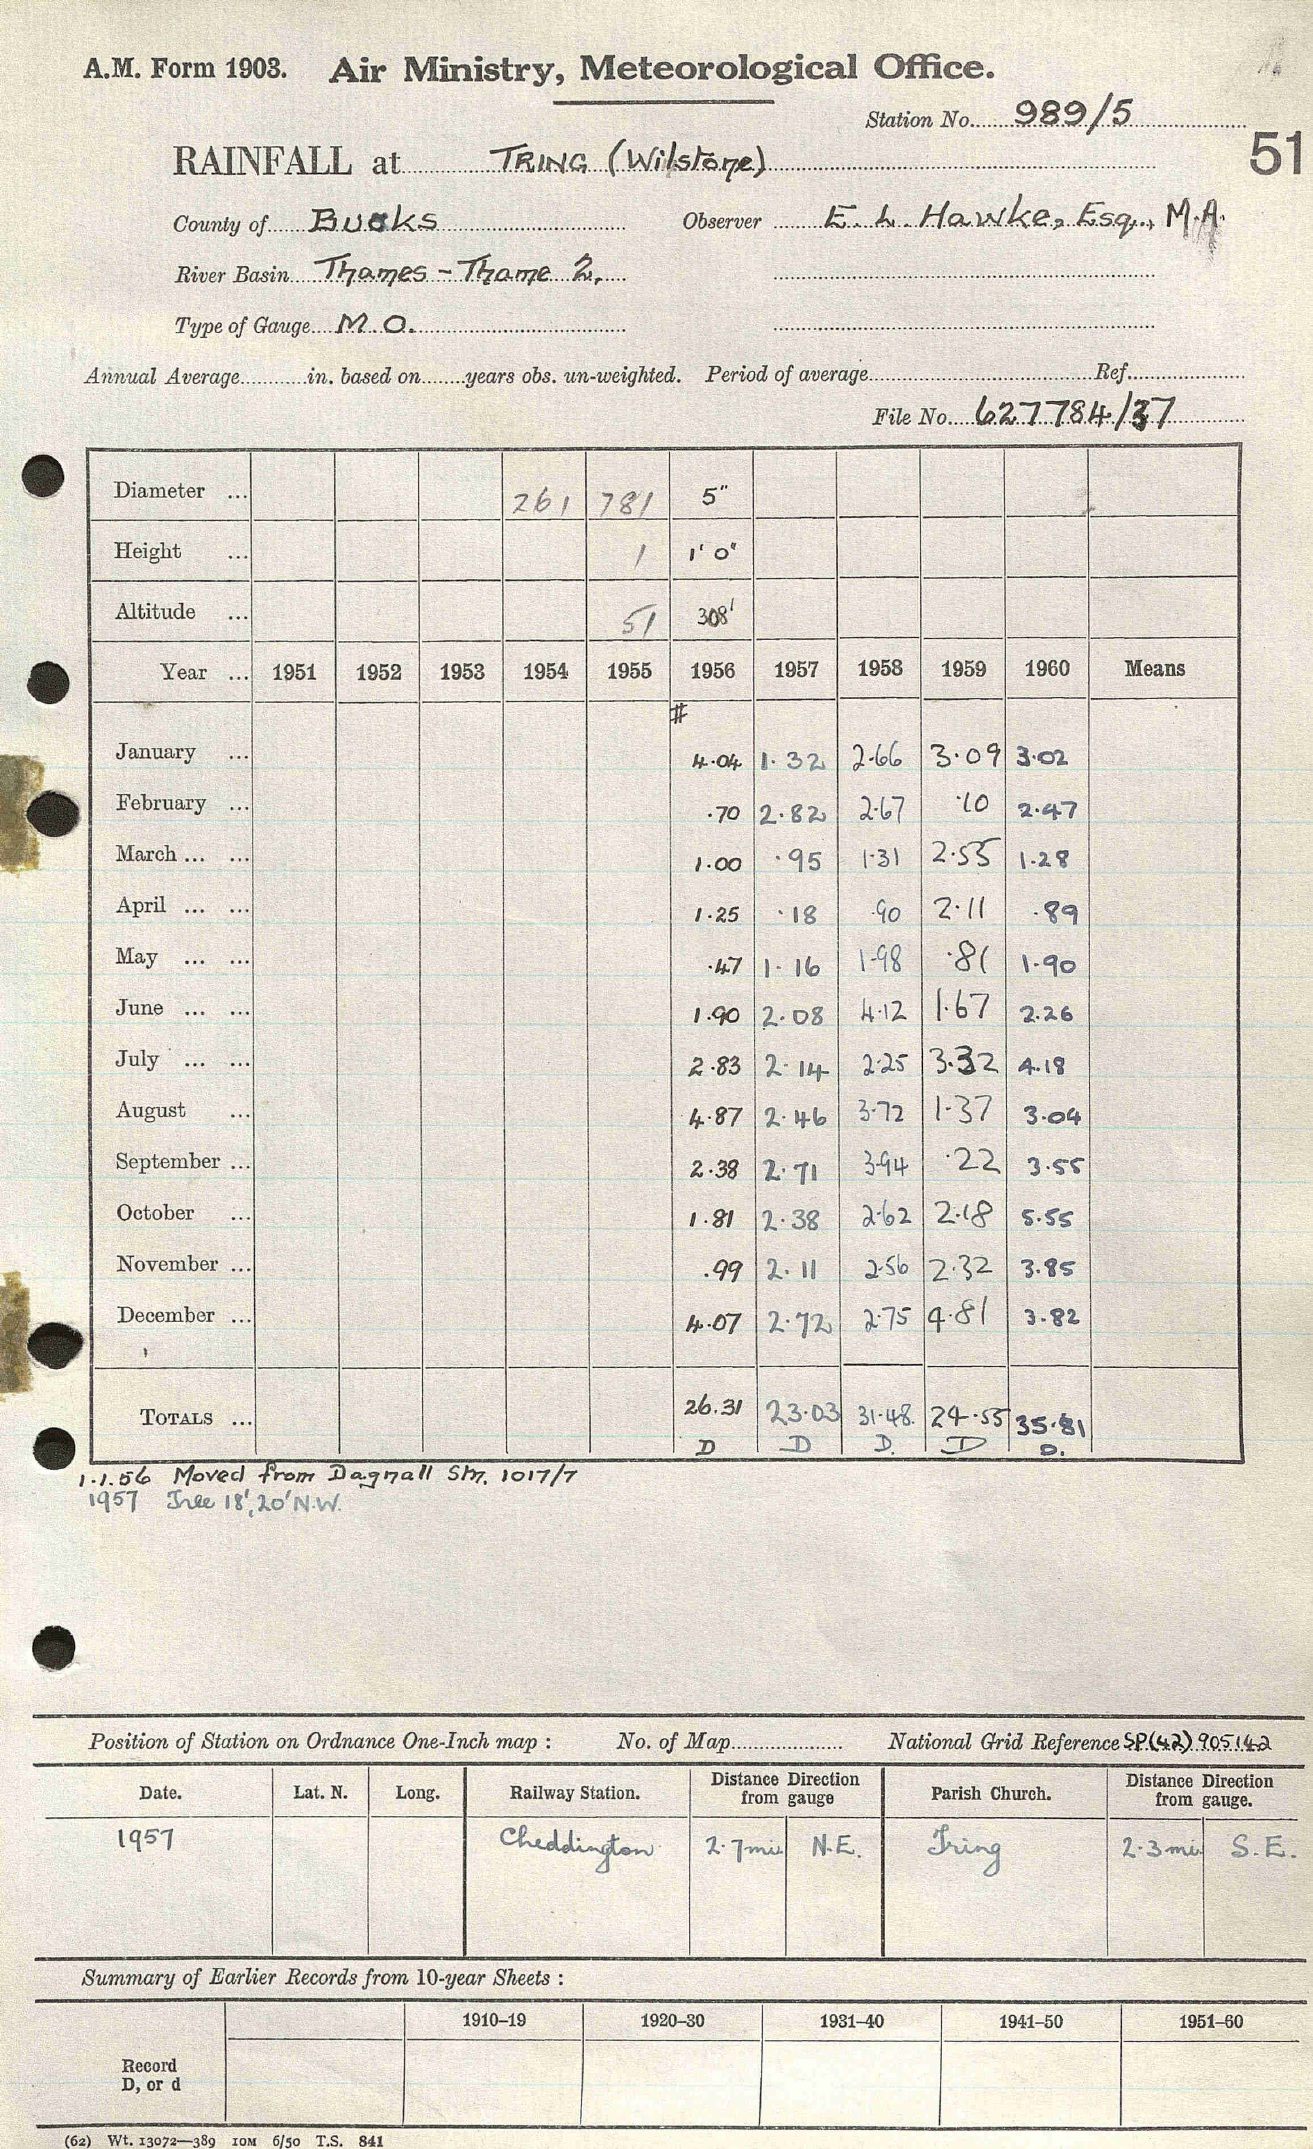 A.M. Form 1903. Air Ministry, Meteorological Office.
Station No. 989/5
51
RAINFALL at TRING (Wilstone)
County of Bucks Observer E. L. Hawke, Esq., M.A.
River Basin Thames - Thame 2.
Type of Gauge M.O.
Annual Average in. based on years obs. un-weighted. Period of average Ref.
File No. 627784/37
Diameter ... 261 781 5"
Height ... 1 1' 0"
Altitude ... 51 308'
Year ... 1951 1952 1953 1954 1955 1956 1957 1958 1959 1960 Means
#
January ... 4.04 1.32 2.66 3.09 3.02
February ... .70 2.82 2.67 .10 2.47
March ... ... 1.00 .95 1.31 2.55 1.28
April ... ... 1.25 .18 .90 2.11 .89
May ... ... .47 1.16 1.98 .81 1.90
June ... ... 1.90 2.08 4.12 1.67 2.26
July ... ... 2.83 2.14 2.25 3.32 4.18
August ... 4.87 2.46 3.72 1.37 3.04
September ... 2.38 2.71 3.94 .22 3.55
October ... 1.81 2.38 2.62 2.18 5.55
November ... .99 2.11 2.56 2.32 3.85
December ... 4.07 2.72 2.75 4.81 3.82
TOTALS ... 26.31 23.03 31.48. 24.55 35.81
D D D. D D.
1.1.56 Moved from Dagnall Stn. 1017/7
1957 Tree 18', 20' N.W.
Position of Station on Ordnance One-Inch map : No. of Map National Grid Reference SP(42) 905142
Date. Lat. N. Long. Railway Station. Distance Direction from gauge Parish Church. Distance Direction from gauge.
1957 Cheddington 2.7mi N.E. Tring 2.3mi S.E.
Summary of Earlier Records from 10-year Sheets :
1910–19 1920–30 1931–40 1941–50 1951–60
Record
D, or d
(62) Wt. 13072—389 10M 6/50 T.S. 841